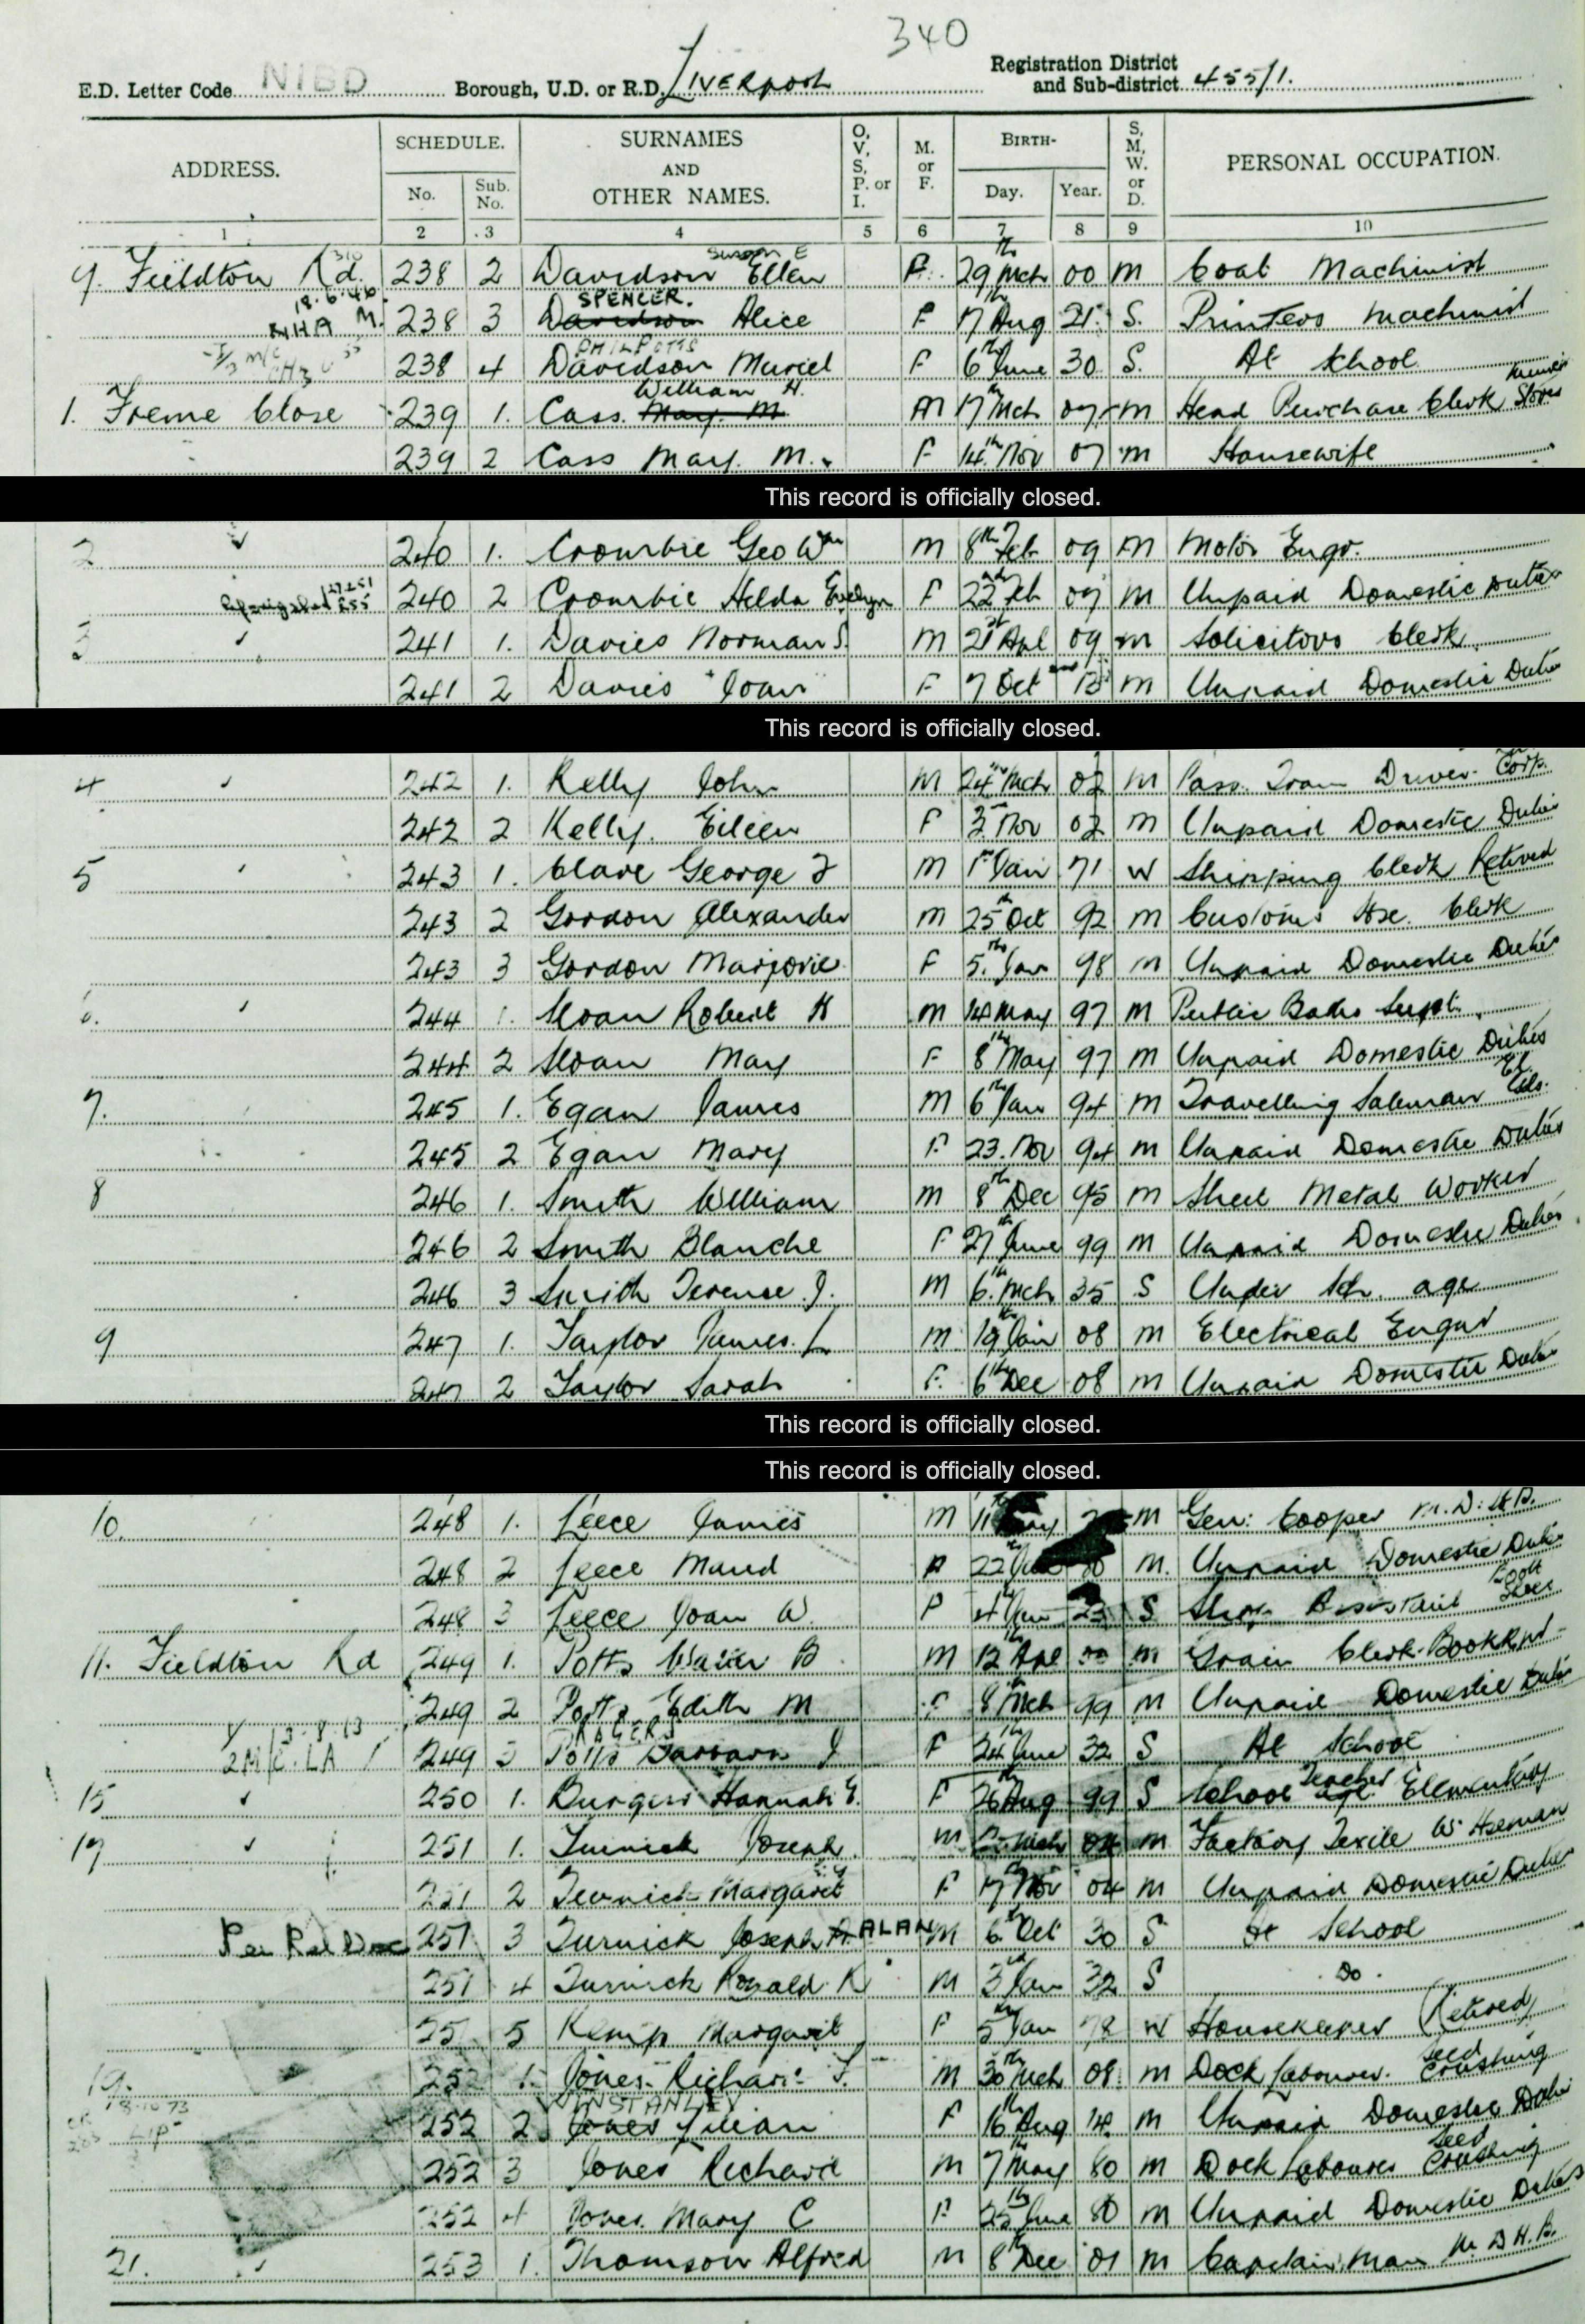 340
E.D. Letter Code NIBD Borough, U.D. or R.D. Liverpool Registration District and Sub-district 455/1.
ADDRESS. SCHEDULE. No. Sub. No. SURNAMES AND OTHER NAMES. O, V, S, P. or I. M. or F. BIRTH- Day. Year. S, M, W. or D. PERSONAL OCCUPATION.
1 2 3 4 5 6 7 8 9 10
Susan E
9. Fieldton Rd. 238 2 Davidson Ellen F. 29th Mch 00 M Coat Machinist
18.6.46 SPENCER.
NHA M. 238 3 Davidson Alice F 17th Aug 21. S. Printers Machinist
PHILPOTTS
238 4 Davidson Muriel F 6th June 30 S. At School
William H.
1. Freme Close 239 1. Cass. May. M M 17 Mch 07 M Head Purchase Clerk Stores
239 2 Cass May. M. F 14th Nov 07 M Housewife
This record is officially closed.
2 240 1. Crombie Geo Wm M 8th Feb 09 M Motor Engr.
240 2 Crombie Hilda Evelyn F 22nd Feb 09 M Unpaid Domestic Duties
3 241 1. Davies Norman S. M 21st Apl 09 M Solicitors Clerk
241 2 Davies Joan F 7 Oct 13 M Unpaid Domestic Duties
This record is officially closed.
4 242 1. Kelly John M 24th Mch 02 M Pass. Tram Driver Corp.
242 2 Kelly. Eileen F 3 Nov 02 M Unpaid Domestic Duties
5 243 1. Clare George M 1st Jan 71 W Shipping Clerk Retired
243 2 Gordon Alexander M 25th Oct 92 M Customs Hse. Clerk
243 3 Gordon Marjorie F 5th Jan 98 M Unpaid Domestic Duties
6. 244 1. Sloan Robert H M 14 May 97 M Public Baths Supt.
244 2 Sloan May F 8th May 97 M Unpaid Domestic Duties
7. 245 1. Egan James M 6th Jan 94 M Travelling Salesman
245 2 Egan Mary F. 23. Nov 94 M Unpaid Domestic Duties
8 246 1. Smith William M 8th Dec 95 M Sheet Metal Worker
246 2 Smith Blanche F 27th June 99 M Unpaid Domestic Duties
246 3 Smith Terence J. M 6th Mch 35 S Under Sch. age
9 247 1. Taylor James. L M 19th Jan 08 M Electrical Engnr
247 2 Taylor Sarah F. 6th Dec 08 M Unpaid Domestic Duties
This record is officially closed.
This record is officially closed.
10. 248 1. Leece James M 11th M Gen: Cooper M.D.H.B.
248 2 Leece Maud F 22 M. Unpaid Domestic Duties
248 3 Leece Joan W. F 4 23 S Shop Assistant Boot Shoes
11. Fieldton Rd 249 1. Potts B M 12th Apl 00 M Grain Clerk-Bookkpr
249 2 Potts Edith M F 8th Mch 99 M Unpaid Domestic Duties
13-8-53
2M/C. LA 249 3 Potts Barbara J F 24th June 32 S At School
15 250 1. Burgess Hannah E. F 26th Aug 99 S School Teacher Elementary
17 251 1. Turnick Joseph M Mch 04 M Factory Textile
251 2 Turnick Margaret F 17th Nov 04 M Unpaid Domestic Duties
251 3 Turnick Joseph A ALAN M 6th Oct 30 S At School
251 4 Turnick Ronald K M 3rd Jan 32 S Do.
25 5 Kemp Margaret F 5th Jan 78 W Housekeeper Retired
19. 252 1. Jones. Richard T. M 30th Mch 08 M Dock Labourer. Seed Crushing
18-10 73 WINSTANLEY
252 2 Jones Lilian F 16th Aug 14 M Unpaid Domestic Duties
252 3 Jones Richard M 7th May 80 M Dock Labourer Seed Crushing
252 4 Jones. Mary C F 25th June 80 M Unpaid Domestic Duties
21. 253 1. Thomson Alfred M 8th Dec 01 M Capstan Man M.D.H.B.